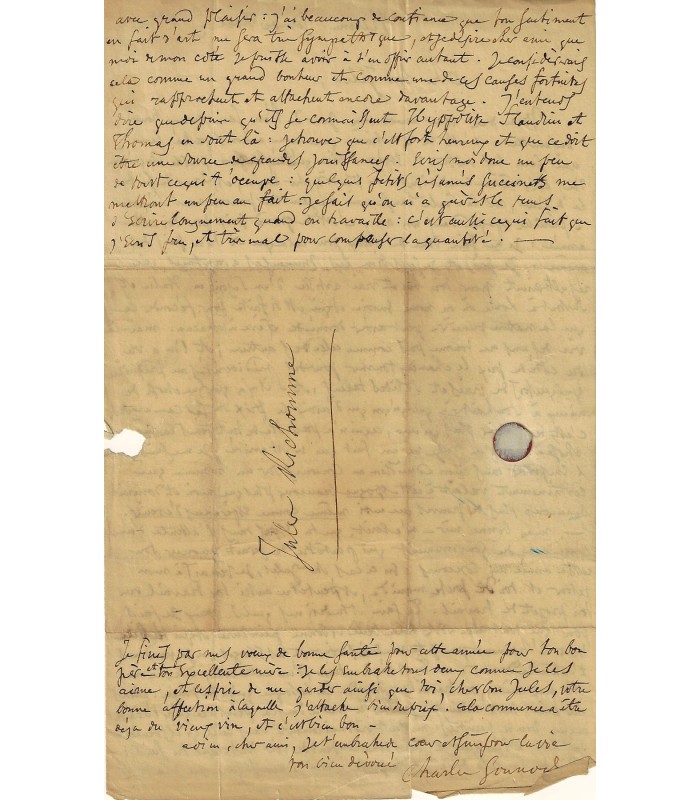 avec grand plaisir : j'ai beaucoup de confiance que ton sentiment
en fait d'art me sera très sympathique, et je désire cher ami que
moi de mon côté je puisse avoir à t'en offrir autant. Je considèrerais
cela comme un grand bonheur et comme une de ces causes fortuites
qui rapprochent et attachent encore davantage. J'entends
dire que depuis qu'ils se connaissent Hyppolite Flandrin et
Thomas en sont là : je trouve que c'est fort heureux et que ce doit
être une source de grandes jouissances. Ecris moi donc un peu
de tout ce qui t'occupe : quelques petits résumés succincts me
mettront un peu au fait : je sais qu'on n'a guères le tems
d'écrire longuement quand on travaille : c'est aussi ce qui fait que
j'écris peu, et très mal pour compenser la quantité. —
Jules Richomme
Je finis par mes vœux de bonne santé pour cette année pour ton bon
père et ton excellente mère : je les embrasse tous deux comme je les
aime, et les prie de me garder ainsi que toi, cher bon Jules, votre
bonne affection à laquelle j'attache bien du prix. cela commence à être
déjà du vieux vin, et c'est bien bon —
adieu, cher ami, je t'embrasse de cœur et suis pour la vie
ton bien dévoué Charles Gounod